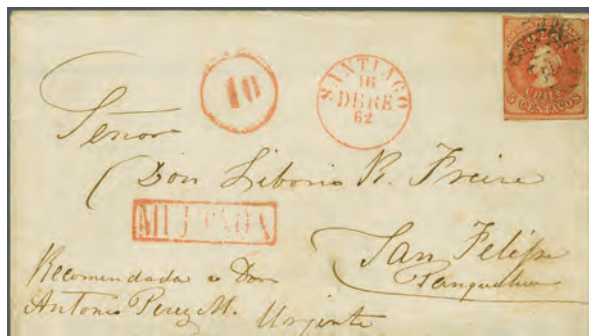 10
SANTIAGO
16
DBRE
62
CHILE
CENTAVOS
Señor
Don Liborio R. Freire
MULTADA
San Felipe
Panquehue
Recomendada a Don
Antonio Perez M.
Urgente